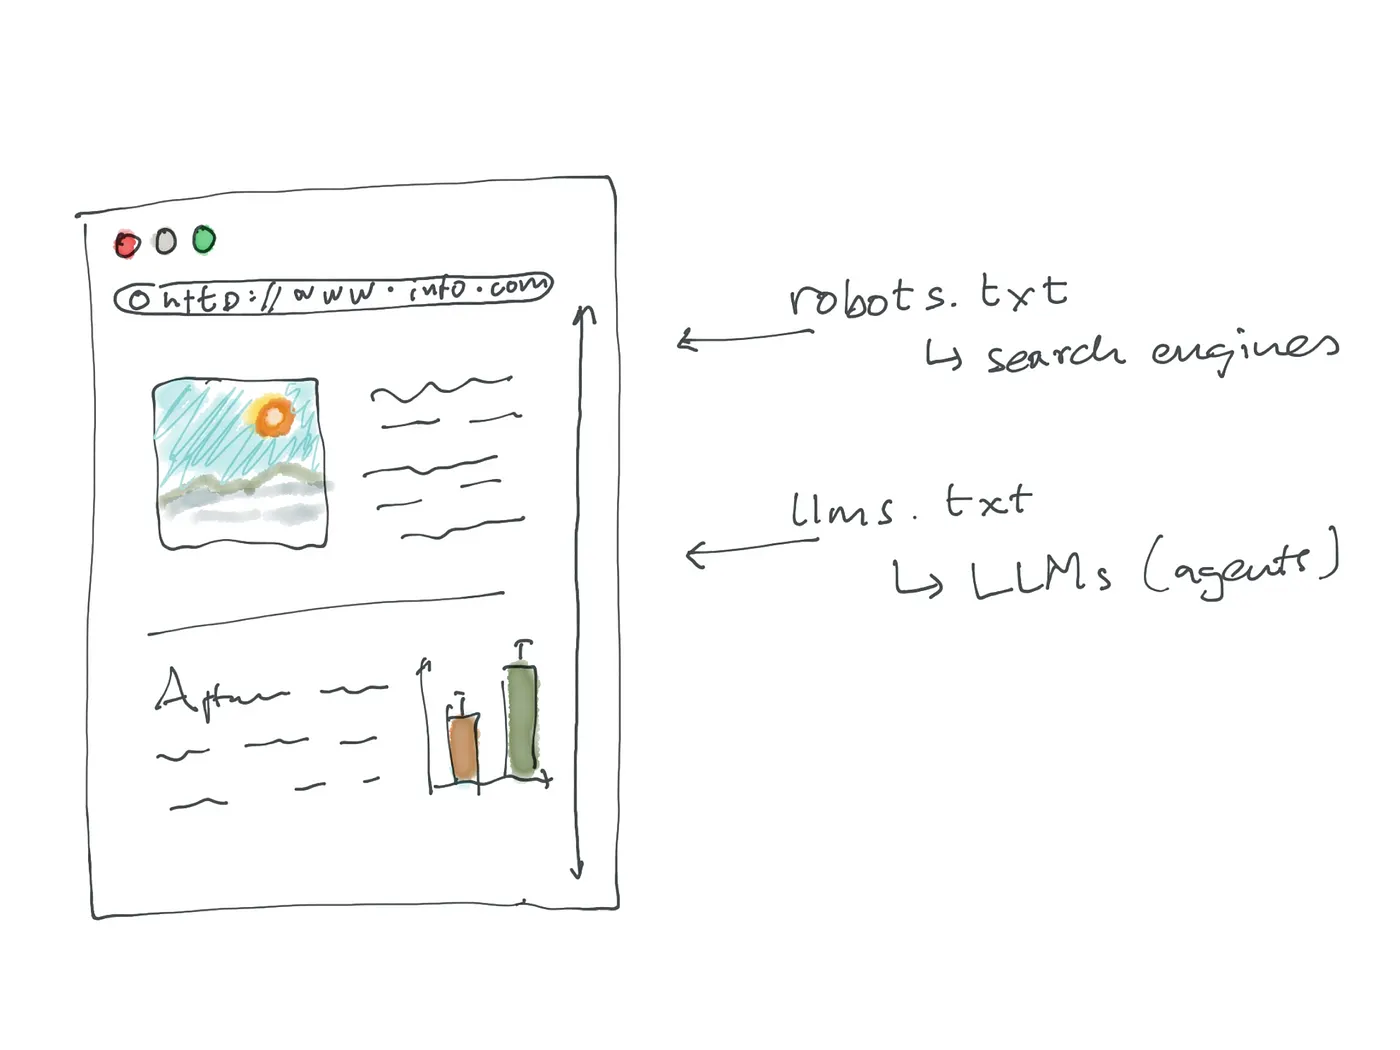 http://www.info.com
robots.txt
↳ search engines
llms.txt
↳ LLMs (agents)